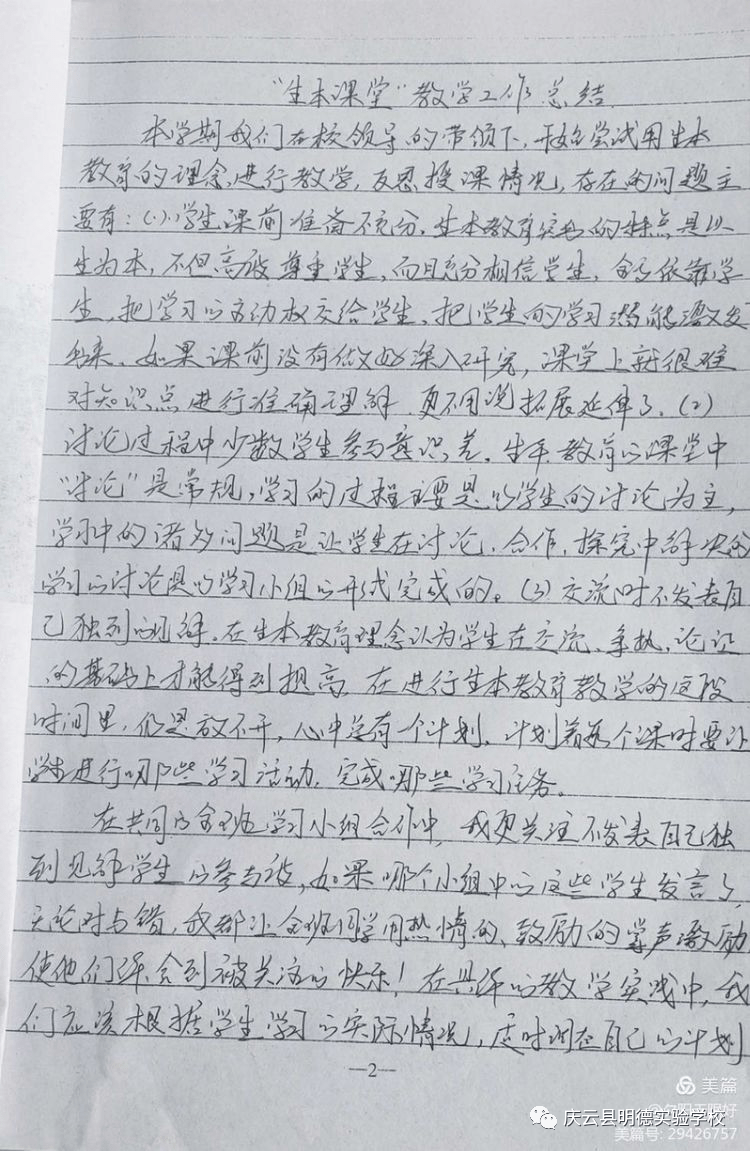 “生本课堂”教学工作总结
本学期我们在校领导的带领下,开始尝试用生本
教育的理念进行教学,反思授课情况,存在的问题主
要有:(1)学生课前准备不充分。生本教育的特点是以
生为本,不但高度尊重学生,而且充分相信学生,全面依靠学
生,把学习的主动权交给学生,把学生的学习潜能激发
出来。如果课前没有做好深入研究,课堂上就很难
对知识点进行准确理解,更不用说拓展延伸了。(2)
讨论过程中少数学生参与意识差。生本教育的课堂中
“讨论”是常规,学习的过程主要是以学生的讨论为主,
学习中的诸多问题是让学生在讨论、合作、探究中解决的
学习的讨论是以学习小组的形式完成的。(3)交流时不发表自
己独到见解。在生本教育理念认为学生在交流、争执、论证
的基础上才能得到提高。在进行生本教育教学的这段
时间里,仍是放不开,心中总有一个计划,计划着每个课时要让
学生进行哪些学习活动,完成哪些学习任务。
在共同的全班学习小组合作中,我更关注不发表自己独
到见解学生的参与度,如果哪个小组中的这些学生发言了,
无论对与错,我都让全班同学用热情的、鼓励的掌声激励
使他们体会到被关注的快乐!在具体的教学实践中,我
们应该根据学生学习的实际情况,适时调在自己的计划
—2—
美篇
庆云县明德实验学校
美篇号: 29426757